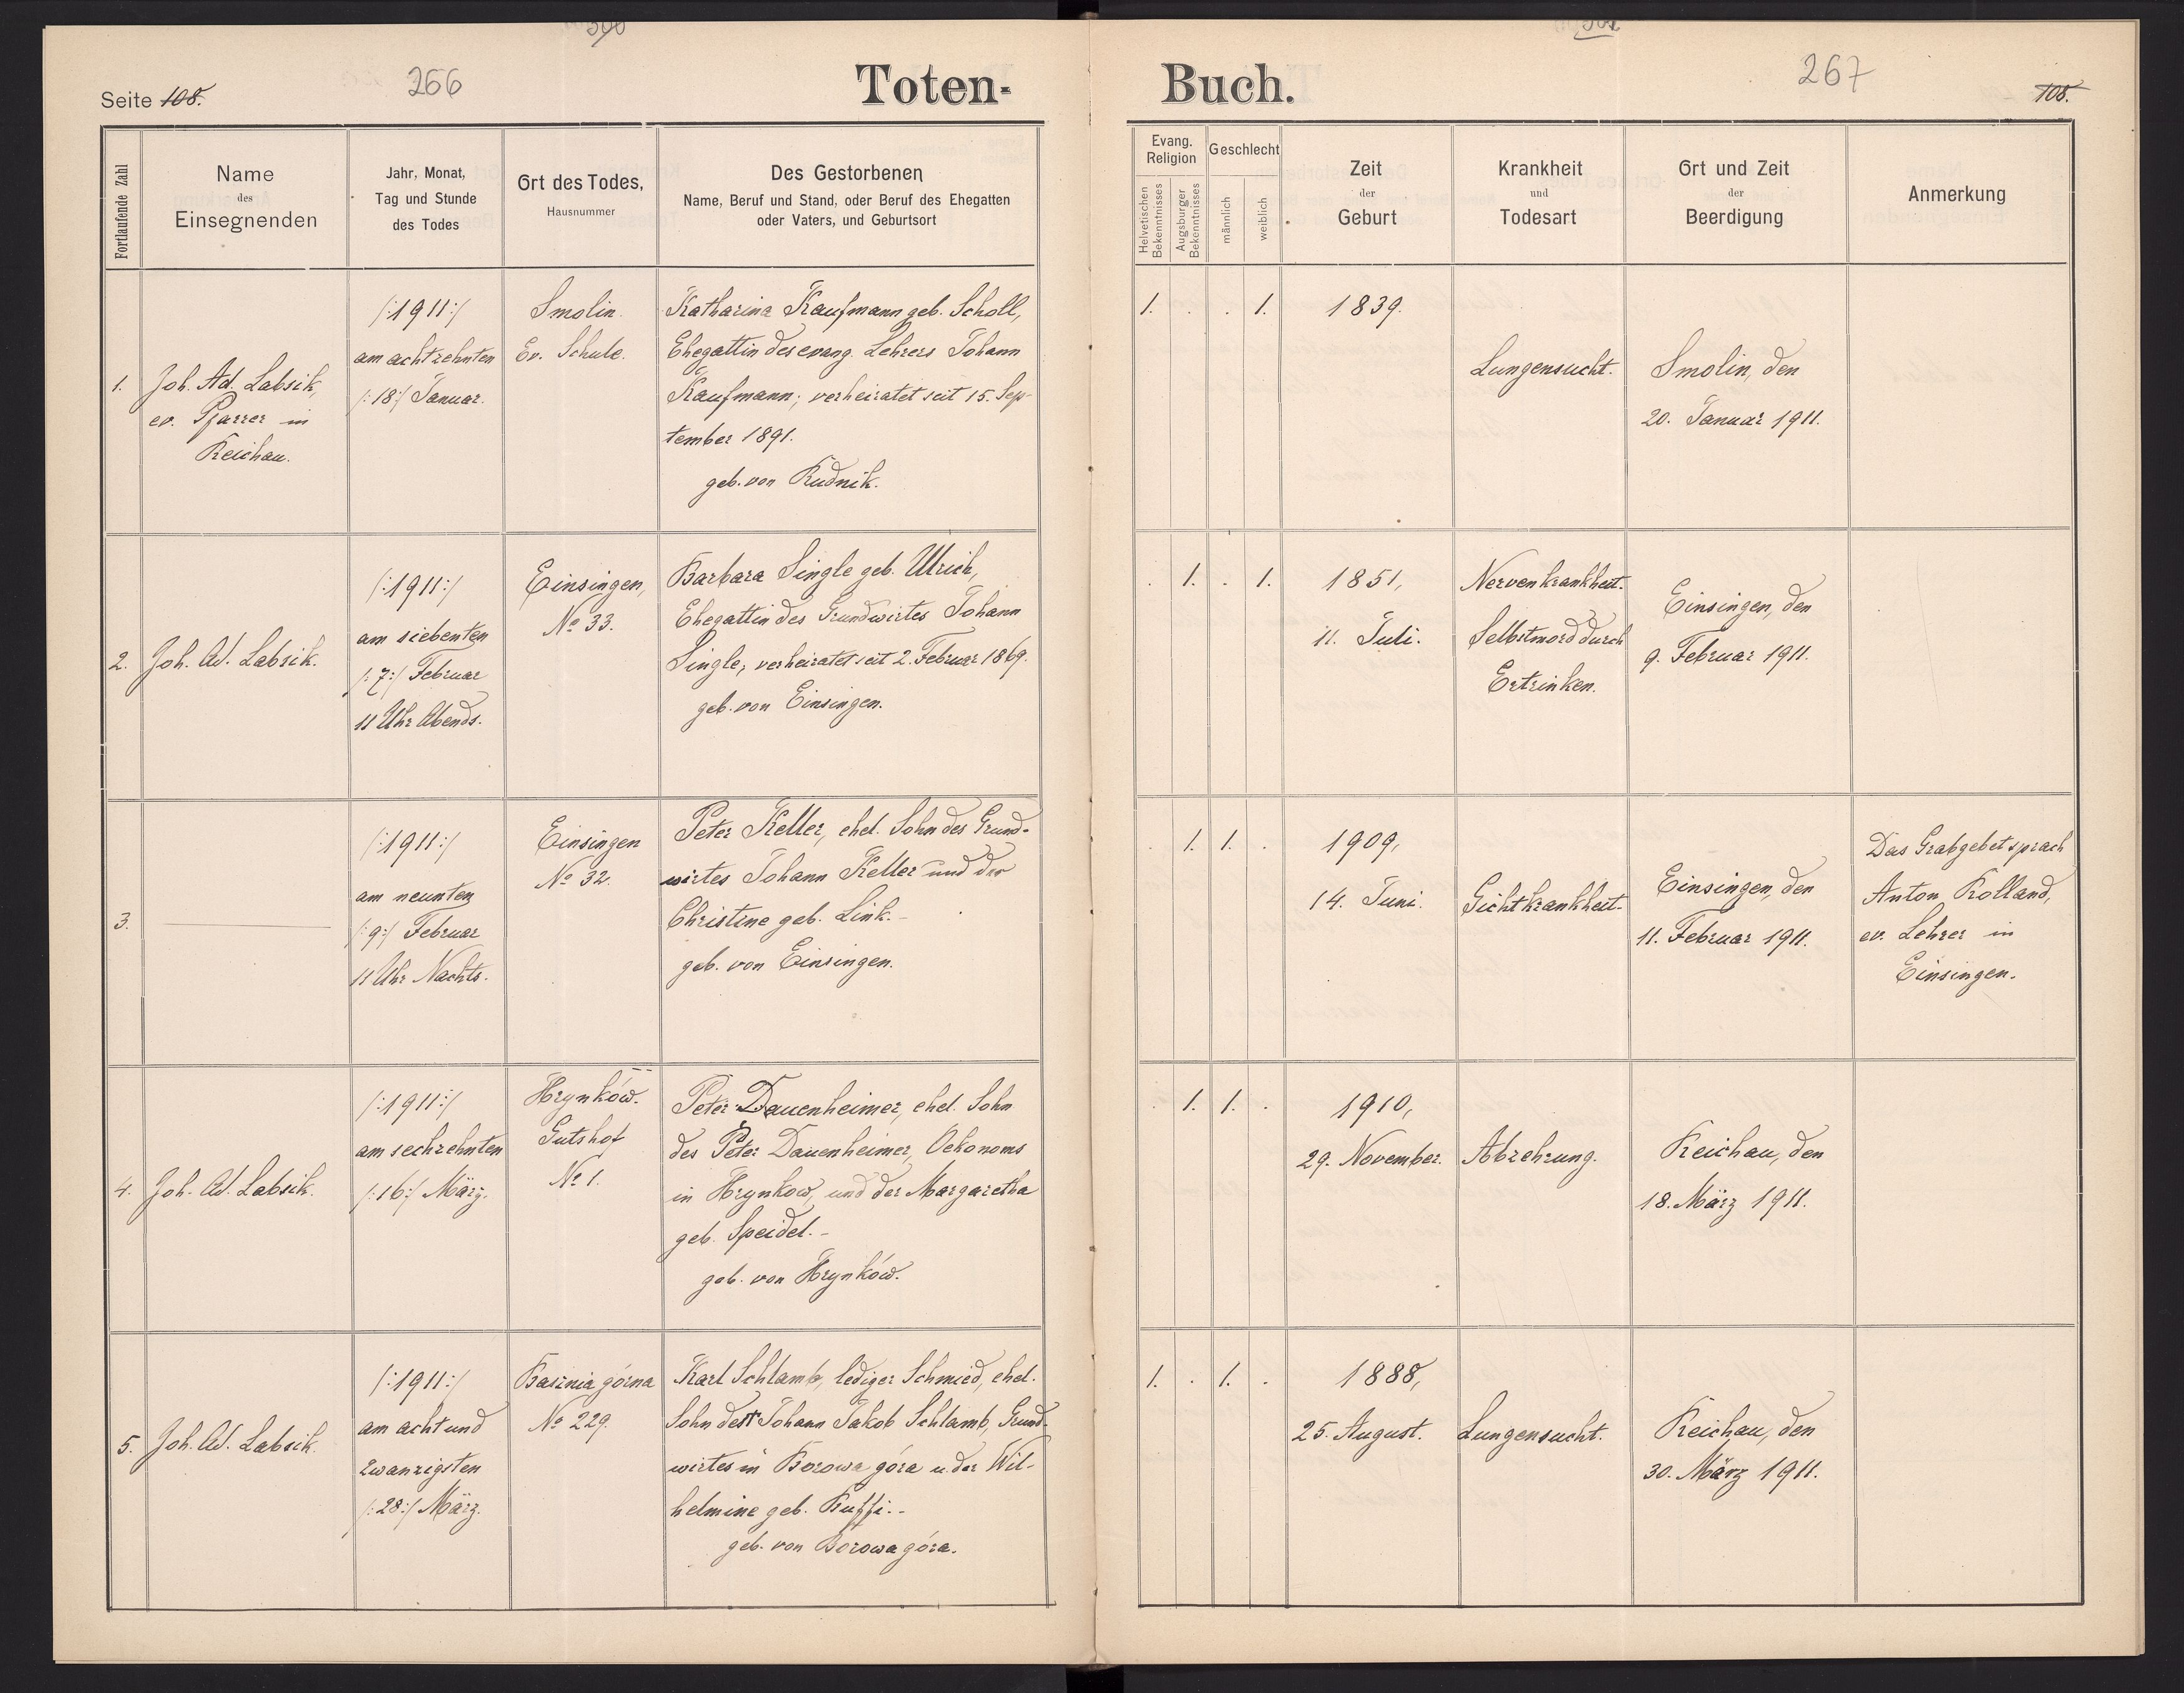 Seite 108.
266
Toten-
Fortlaufende Zahl
Name
des
Einsegnenden
Jahr, Monat,
Tag und Stunde
des Todes
Ort des Todes,
Hausnummer
Des Gestorbenen
Name, Beruf und Stand, oder Beruf des Ehegatten
oder Vaters, und Geburtsort
1.
Joh. Ad. Labsik,
ev. Pfarrer in
Reichau.
/:1911:/
am achtzehnten
/:18:/ Januar.
Smolin.
Ev. Schule.
Katharina Kaufmann geb. Scholl,
Ehegattin des evang. Lehrers Johann
Kaufmann; verheiratet seit 15. Sep-
tember 1891.
geb. von Rudnik.
2.
Joh. Ad. Labsik.
/:1911:/
am siebenten
/:7:/ Februar
11 Uhr Abends.
Einsingen,
No 33.
Barbara Single geb. Ulrich,
Ehegattin des Grundwirtes Johann
Single, verheiratet seit 2. Februar 1869.
geb. von Einsingen.
3.
/:1911:/
am neunten
/:9:/ Februar
11 Uhr Nachts.
Einsingen
No 32.
Peter Keller, ehel. Sohn des Grund-
wirtes Johann Keller und der
Christine geb. Link.-
geb. von Einsingen.
4.
Joh. Ad. Labsik.
/:1911:/
am sechzehnten
/:16:/ März.
Hrynków.
Gutshof
No 1.
Peter Dauenheimer, ehel. Sohn
des Peter Dauenheimer, Oekonoms
in Hrynkow, und der Margaretha
geb. Speidel.-
geb. von Hrynków.
5.
Joh. Ad. Labsik.
/:1911:/
am achtund
zwanzigsten
/:28:/ März.
Basznia górna
No 229.
Karl Schlamb, lediger Schmied, ehel.
Sohn des Johann Jakob Schlamb, Grund-
wirtes in Borowa góra u. der Wil-
helmine geb. Ruffi.-
geb. von Borowa góra.
Buch.
267
108.
Evang.
Religion
Helvetischen
Bekenntnisses
Augsburger
Bekenntnisses
Geschlecht
männlich
weiblich
Zeit
der
Geburt
Krankheit
und
Todesart
Ort und Zeit
der
Beerdigung
Anmerkung
1. . . 1.
1839.
Lungensucht.
Smolin, den
20. Januar 1911.
. 1. . 1.
1851,
11. Juli.
Nervenkrankheit.
Selbstmord durch
Ertrinken.
Einsingen, den
9. Februar 1911.
. 1. 1. .
1909,
14. Juni.
Gichtkrankheit.
Einsingen, den
11. Februar 1911.
Das Grabgebet sprach
Anton Kolland,
ev. Lehrer in
Einsingen.
. 1. 1. .
1910,
29. November.
Abzehrung.
Reichau, den
18. März 1911.
1. . 1. .
1888,
25. August.
Lungensucht.
Reichau, den
30. März 1911.